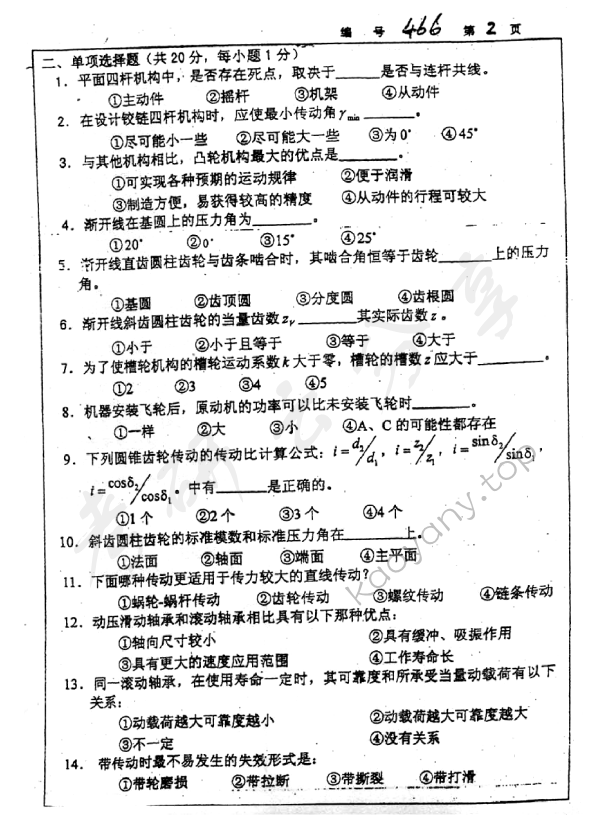 编 号 466 第 2 页
二、单项选择题（共20分，每小题1分）
1．平面四杆机构中，是否存在死点，取决于______是否与连杆共线。
①主动件 ②摇杆 ③机架 ④从动件
2．在设计铰链四杆机构时，应使最小传动角γmin______。
①尽可能小一些 ②尽可能大一些 ③为0° ④45°
3．与其他机构相比，凸轮机构最大的优点是______。
①可实现各种预期的运动规律 ②便于润滑
③制造方便，易获得较高的精度 ④从动件的行程可较大
4．渐开线在基圆上的压力角为______。
①20° ②0° ③15° ④25°
5．渐开线直齿圆柱齿轮与齿条啮合时，其啮合角恒等于齿轮______上的压力
角。
①基圆 ②齿顶圆 ③分度圆 ④齿根圆
6．渐开线斜齿圆柱齿轮的当量齿数zv______其实际齿数z。
①小于 ②小于且等于 ③等于 ④大于
7．为了使槽轮机构的槽轮运动系数k大于零，槽轮的槽数z应大于______。
①2 ②3 ③4 ④5
8．机器安装飞轮后，原动机的功率可以比未安装飞轮时______。
①一样 ②大 ③小 ④A、C的可能性都存在
9．下列圆锥齿轮传动的传动比计算公式：i=d₂/d₁，i=z₂/z₁，i=sinδ₂/sinδ₁，
i=cosδ₂/cosδ₁。中有______是正确的。
①1个 ②2个 ③3个 ④4个
10．斜齿圆柱齿轮的标准模数和标准压力角在______上。
①法面 ②轴面 ③端面 ④主平面
11．下面哪种传动更适用于传力较大的直线传动？
①蜗轮-蜗杆传动 ②齿轮传动 ③螺纹传动 ④链条传动
12．动压滑动轴承和滚动轴承相比具有以下那种优点：
①轴向尺寸较小 ②具有缓冲、吸振作用
③具有更大的速度应用范围 ④工作寿命长
13．同一滚动轴承，在使用寿命一定时，其可靠度和所承受当量动载荷有以下
关系：
①动载荷越大可靠度越小 ②动载荷越大可靠度越大
③不一定 ④没有关系
14． 带传动时最不易发生的失效形式是：
①带轮磨损 ②带拉断 ③带撕裂 ④带打滑
考研云分享
kaoyany.top